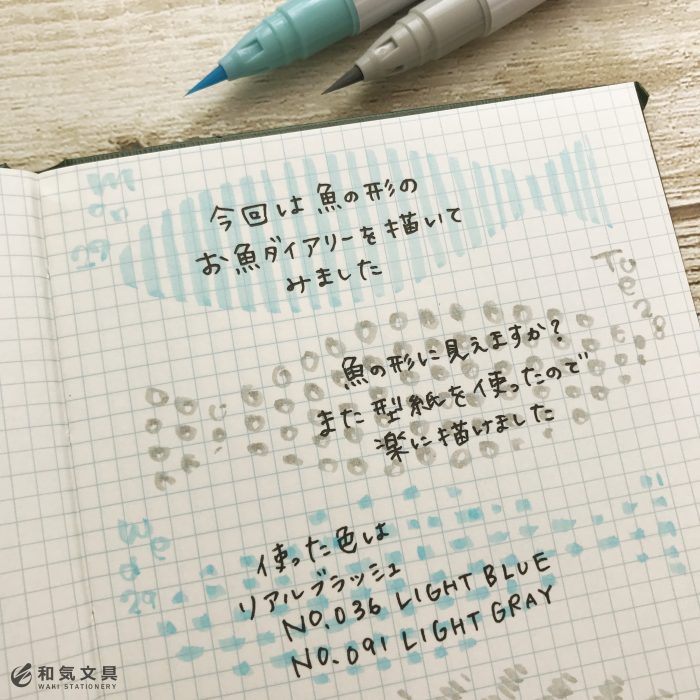 今回は魚の形の
お魚ダイアリーを描いて
みました
魚の形に見えますか?
また型紙を使ったので
楽に描けました
使った色は
リアルブラッシュ
NO.036 LIGHT BLUE
NO.091 LIGHT GRAY
Tue 28
和気文具
WAKI STATIONERY